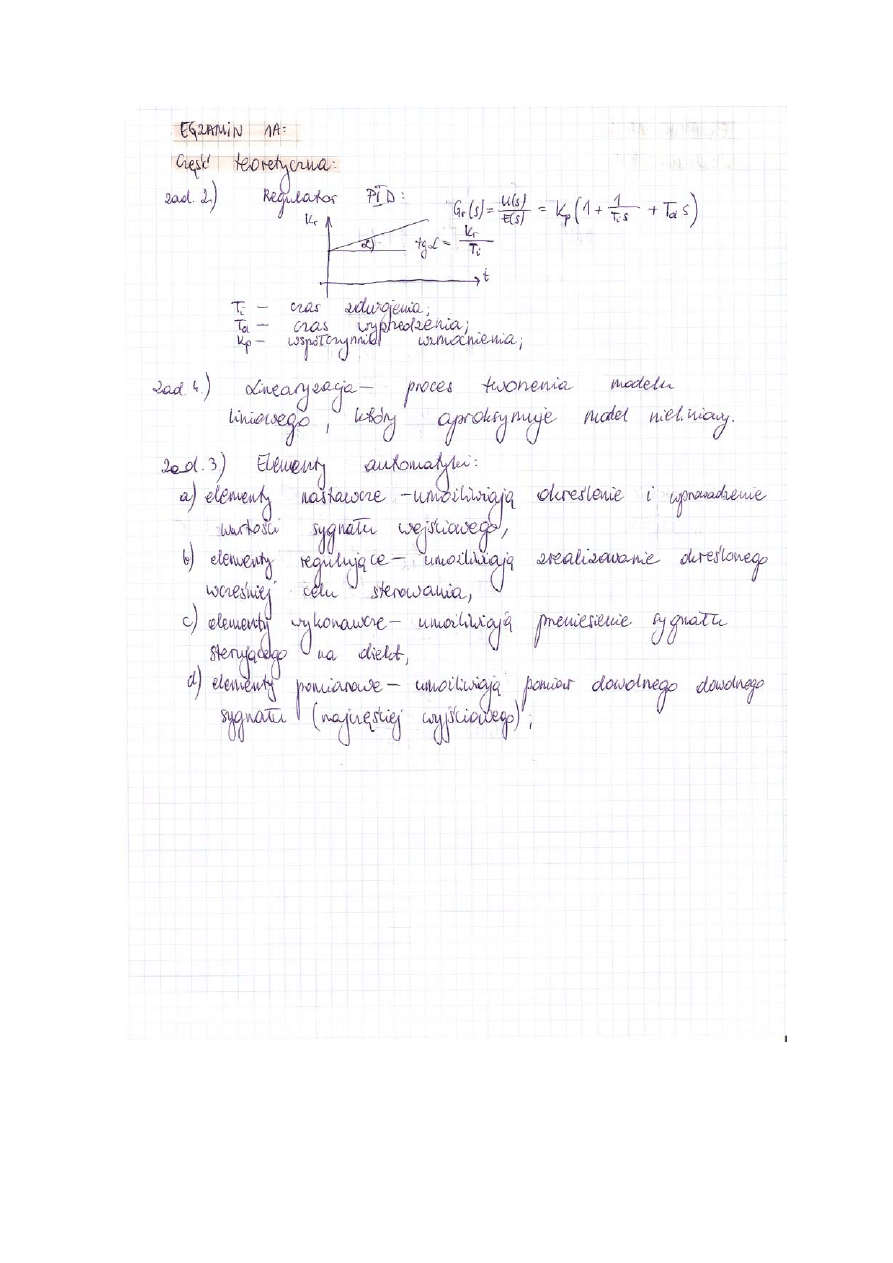 EGZAMIN 1A:
Część teoretyczna:
zad. 2.) Regulator PID: Gr(s) = U(s)/E(s) = Kp(1 + 1/Tis + Td s)
Kr
α) tgα = Kr/Ti
t
Ti – czas zdwojenia;
Td – czas wyprzedzenia;
Kp – współczynnik wzmocnienia;
zad. 4.) Linearyzacja – proces tworzenia modelu
liniowego, który aproksymuje model nieliniowy.
zad. 3) Elementy automatyki:
a) elementy nastawcze – umożliwiają określenie i wprowadzenie
wartości sygnału wejściowego,
b) elementy regulujące – umożliwiają zrealizowanie określonego
wcześniej celu sterowania,
c) elementy wykonawcze – umożliwiają przeniesienie sygnału
sterującego na obiekt,
d) elementy pomiarowe – umożliwiają pomiar dowolnego dowolnego
sygnału (najczęściej wyjściowego);